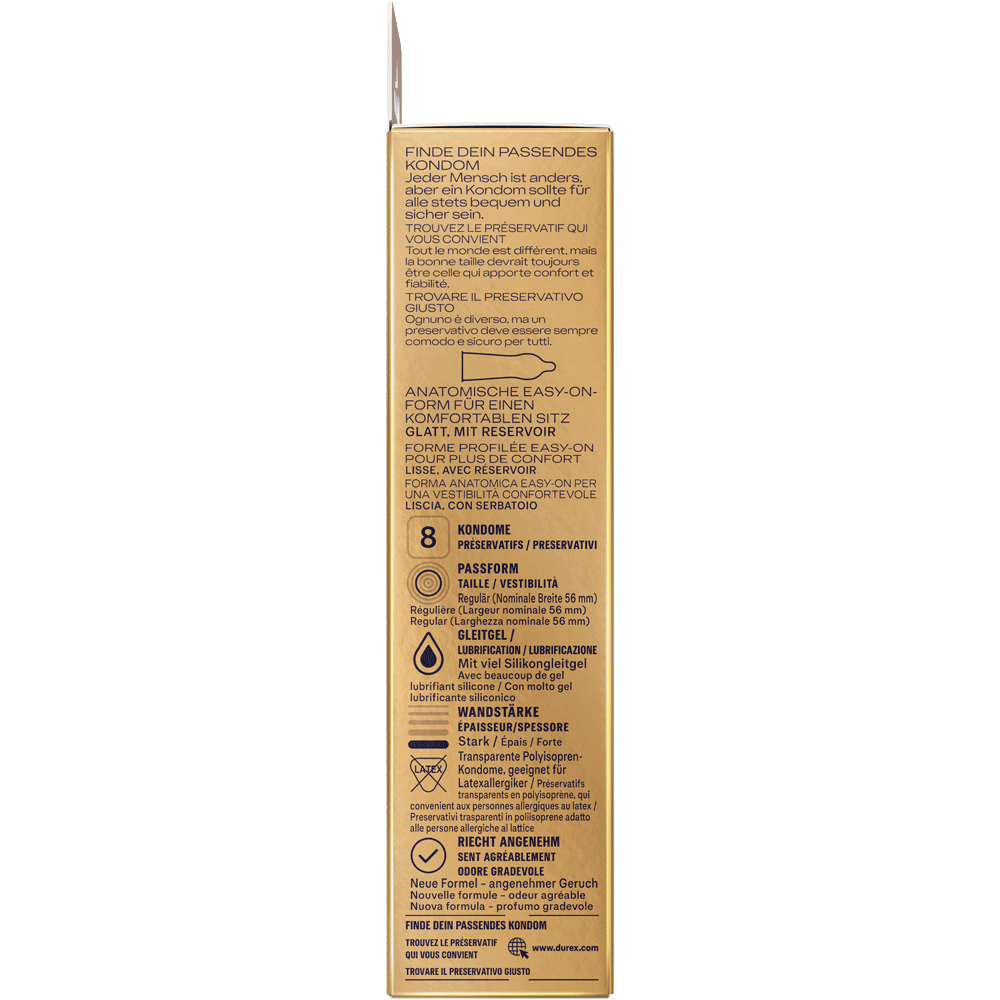 FINDE DEIN PASSENDES
KONDOM
Jeder Mensch ist anders,
aber ein Kondom sollte für
alle stets bequem und
sicher sein.
TROUVEZ LE PRÉSERVATIF QUI
VOUS CONVIENT
Tout le monde est différent, mais
la bonne taille devrait toujours
être celle qui apporte confort et
fiabilité.
TROVARE IL PRESERVATIVO
GIUSTO
Ognuno è diverso, ma un
preservativo deve essere sempre
comodo e sicuro per tutti.
ANATOMISCHE EASY-ON-
FORM FÜR EINEN
KOMFORTABLEN SITZ
GLATT, MIT RESERVOIR
FORME PROFILÉE EASY-ON
POUR PLUS DE CONFORT
LISSE, AVEC RÉSERVOIR
FORMA ANATOMICA EASY-ON PER
UNA VESTIBILITÀ CONFORTEVOLE
LISCIA, CON SERBATOIO
8 KONDOME
PRÉSERVATIFS / PRESERVATIVI
PASSFORM
TAILLE / VESTIBILITÀ
Regulär (Nominale Breite 56 mm)
Régulière (Largeur nominale 56 mm)
Regular (Larghezza nominale 56 mm)
GLEITGEL /
LUBRIFICATION / LUBRIFICAZIONE
Mit viel Silikongleitgel
Avec beaucoup de gel
lubrifiant silicone / Con molto gel
lubrificante siliconico
WANDSTÄRKE
ÉPAISSEUR/SPESSORE
Stark / Épais / Forte
LATEX
Transparente Polyisopren-
Kondome, geeignet für
Latexallergiker / Préservatifs
transparents en polyisoprène, qui
convenient aux personnes allergiques au latex /
Preservativi trasparenti in poliisoprene adatto
alle persone allergiche al lattice
RIECHT ANGENEHM
SENT AGRÉABLEMENT
ODORE GRADEVOLE
Neue Formel - angenehmer Geruch
Nouvelle formule - odeur agréable
Nuova formula - profumo gradevole
FINDE DEIN PASSENDES KONDOM
TROUVEZ LE PRÉSERVATIF
QUI VOUS CONVIENT
www.durex.com
TROVARE IL PRESERVATIVO GIUSTO